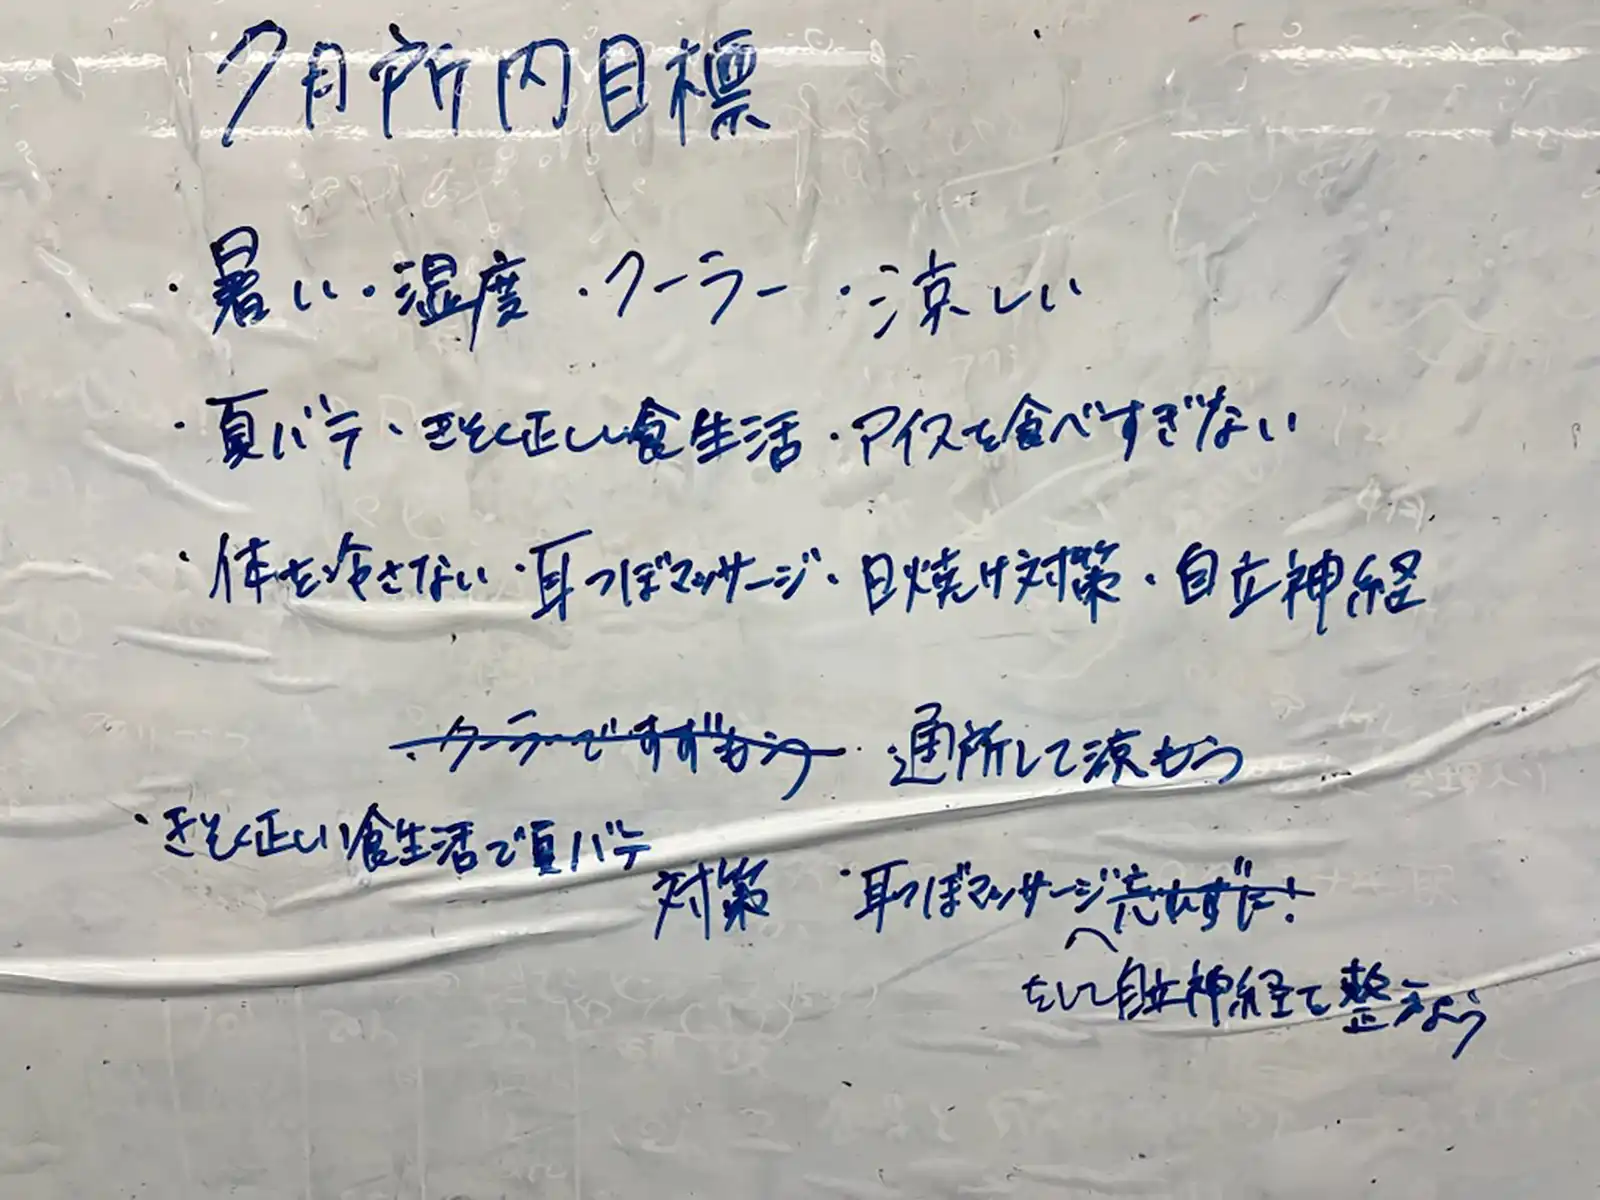 7月所内目標
・暑い・湿度・クーラー・涼しい
・夏バテ・きそく正しい食生活・アイスを食べすぎない
・体を冷さない・耳つぼマッサージ・日焼け対策・自立神経
・クーラーですずもう ・通所して涼もう
・きそく正しい食生活で夏バテ
対策 ・耳つぼマッサージ忘れずに!
をして自立神経を整えよう